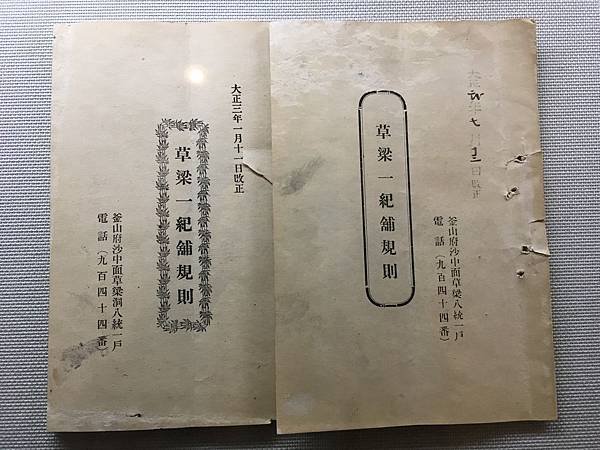 日改正
釜山府沙中面草梁八統一戸
電話(九百四十四番)
草梁一紀舗規則
大正三年一月十一日改正
草梁一紀舗規則
釜山府沙中面草梁洞八統一戸
電話(九百四十四番)